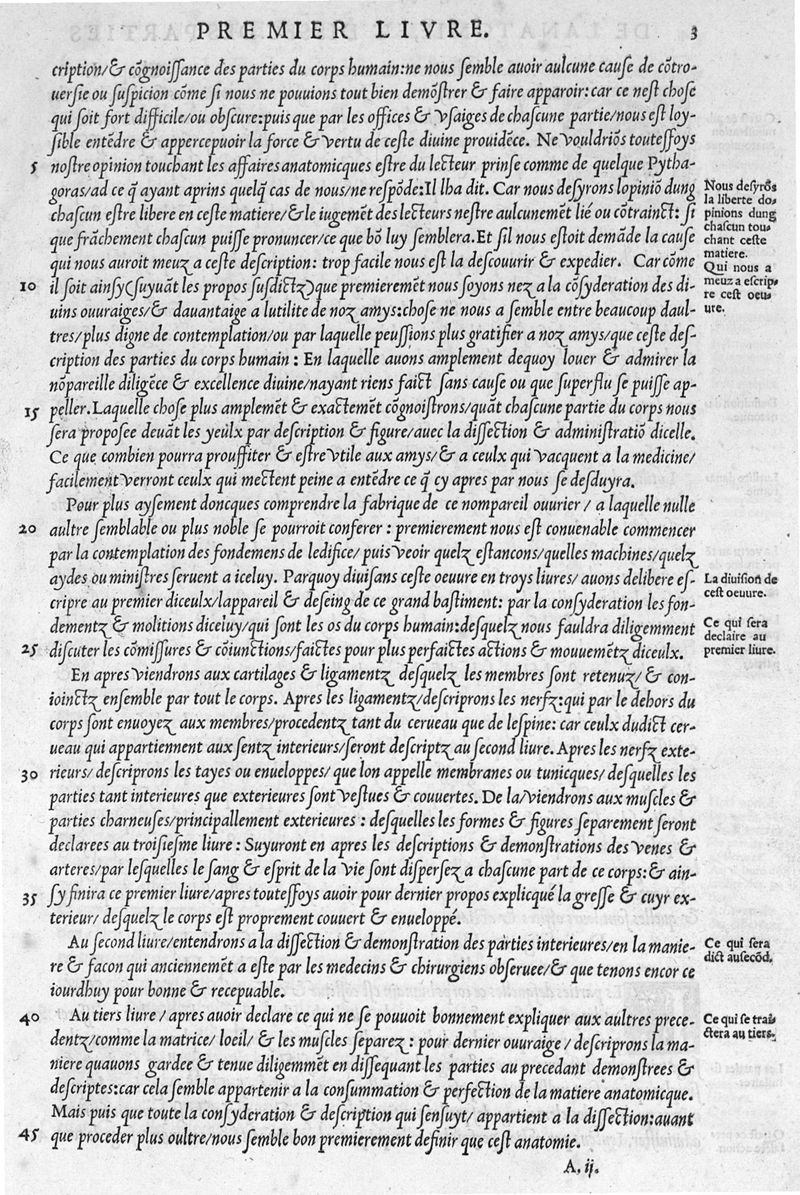 PREMIER LIVRE. 3
cription/& cõgnoiſſance des parties du corps humain:ne nous ſemble auoir aulcune cauſe de cõtro-
uerſie ou ſuſpicion cõme ſi nous ne pouuions tout bien demõſtrer & faire apparoir: car ce neſt choſe
qui ſoit fort difficile/ou obſcure:puis que par les offices & vſaiges de chaſcune partie/nous eſt loy-
ſible entẽdre & appercepuoir la force & vertu de ceſte diuine prouidẽce. Ne vouldriõs touteſfoys
5 noſtre opinion touchant les affaires anatomicques eſtre du lecteur prinſe comme de quelque Pytha-
goras/ad ce q̃ ayant aprins quelq̃ cas de nous/ne reſpõde:Il lha dit. Car nous deſyrons lopiniõ dung
chaſcun eſtre libere en ceſte matiere/& le iugemẽt des lecteurs neſtre aulcunemẽt lié ou cõtrainct: ſi
que frãchement chaſcun puiſſe pronuncer/ce que bõ luy ſemblera.Et ſil nous eſtoit demãde la cauſe
qui nous auroit meuz a ceſte deſcription: trop facile nous eſt la deſcouurir & expedier. Car cõme
10 il ſoit ainſy(ſuyuãt les propos ſuſdictz)que premieremẽt nous ſoyons nez a la cõſyderation des di-
uins ouuraiges/& dauantaige a lutilite de noz amys:choſe ne nous a ſemble entre beaucoup daul-
tres/plus digne de contemplation/ou par laquelle peuſſions plus gratifier a noz amys/que ceſte deſ-
cription des parties du corps humain : En laquelle auons amplement dequoy louer & admirer la
nõpareille diligẽce & excellence diuine/nayant riens faict ſans cauſe ou que ſuperflu ſe puiſſe ap-
15 peller.Laquelle choſe plus amplemẽt & exactemẽt cõgnoiſtrons/quãt chaſcune partie du corps nous
ſera propoſee deuãt les yeulx par deſcription & figure/auec la diſſection & adminiſtratiõ dicelle.
Ce que combien pourra prouffiter & eſtre vtile aux amys/& a ceulx qui vacquent a la medicine/
facilement verront ceulx qui mectent peine a entẽdre ce q̃ cy apres par nous ſe deſduyra.
Pour plus ayſement doncques comprendre la fabrique de ce nompareil ouurier / a laquelle nulle
20 aultre ſemblable ou plus noble ſe pourroit conferer : premierement nous eſt conuenable commencer
par la contemplation des fondemens de ledifice/ puis veoir quelz eſtancons/quelles machines/quelz
aydes ou miniſtres ſeruent a iceluy. Parquoy diuiſans ceſte oeuure en troys liures/ auons delibere eſ-
cripre au premier diceulx/lappareil & deſeing de ce grand baſtiment: par la conſyderation les fon-
dementz & molitions diceluy/qui ſont les os du corps humain:deſquelz nous fauldra diligemment
25 diſcuter les cõmiſſures & cõiunctions/faictes pour plus perfaictes actions & mouuemẽtz diceulx.
En apres viendrons aux cartilages & ligamentz deſquelz les membres ſont retenuz/ & con-
ioinctz enſemble par tout le corps. Apres les ligamentz/deſcriprons les nerfz:qui par le dehors du
corps ſont enuoyez aux membres/procedentz tant du cerueau que de leſpine: car ceulx dudict cer-
ueau qui appartiennent aux ſentz interieurs/ſeront deſcriptz au ſecond liure. Apres les nerfz exte-
30 rieurs/ deſcriprons les tayes ou enueloppes/ que lon appelle membranes ou tunicques/ deſquelles les
parties tant interieures que exterieures ſont veſtues & couuertes. De la/viendrons aux muſcles &
parties charneuſes/principallement exterieures : deſquelles les formes & figures ſeparement ſeront
declarees au troiſieſme liure : Suyuront en apres les deſcriptions & demonſtrations des venes &
arteres/par leſquelles le ſang & eſprit de la vie ſont diſperſez a chaſcune part de ce corps:& ain-
35 ſy finira ce premier liure/apres touteſfoys auoir pour dernier propos expliqué la greſſe & cuyr ex-
terieur/ deſquelz le corps eſt proprement couuert & enueloppé.
Au ſecond liure/entendrons a la diſſection & demonſtration des parties interieures/en la manie-
re & facon qui anciennemẽt a eſte par les medecins & chirurgiens obſeruee/& que tenons encor ce
iourdhuy pour bonne & recepuable.
40 Au tiers liure / apres auoir declare ce qui ne ſe pouuoit bonnement expliquer aux aultres prece-
dentz/comme la matrice/ loeil/ & les muſcles ſeparez : pour dernier ouuraige / deſcriprons la ma-
niere quauons gardee & tenue diligemmẽt en diſſequant les parties au precedant demonſtrees &
deſcriptes:car cela ſemble appartenir a la conſummation & perfection de la matiere anatomicque.
Mais puis que toute la conſyderation & deſcription qui ſenſuyt/ appartient a la diſſection:auant
45 que proceder plus oultre/nous ſemble bon premierement definir que ceſt anatomie.
A. ij.
Nous deſyrõs
la liberte do-
pinions dung
chaſcun tou-
chant ceſte
matiere.
Qui nous a
meuz a eſcrip-
re ceſt oeu-
ure.
La diuiſion de
ceſt oeuure.
Ce qui ſera
declaire au
premier liure.
Ce qui ſera
dict auſecõd.
Ce qui ſe trai-
ctera au tiers.